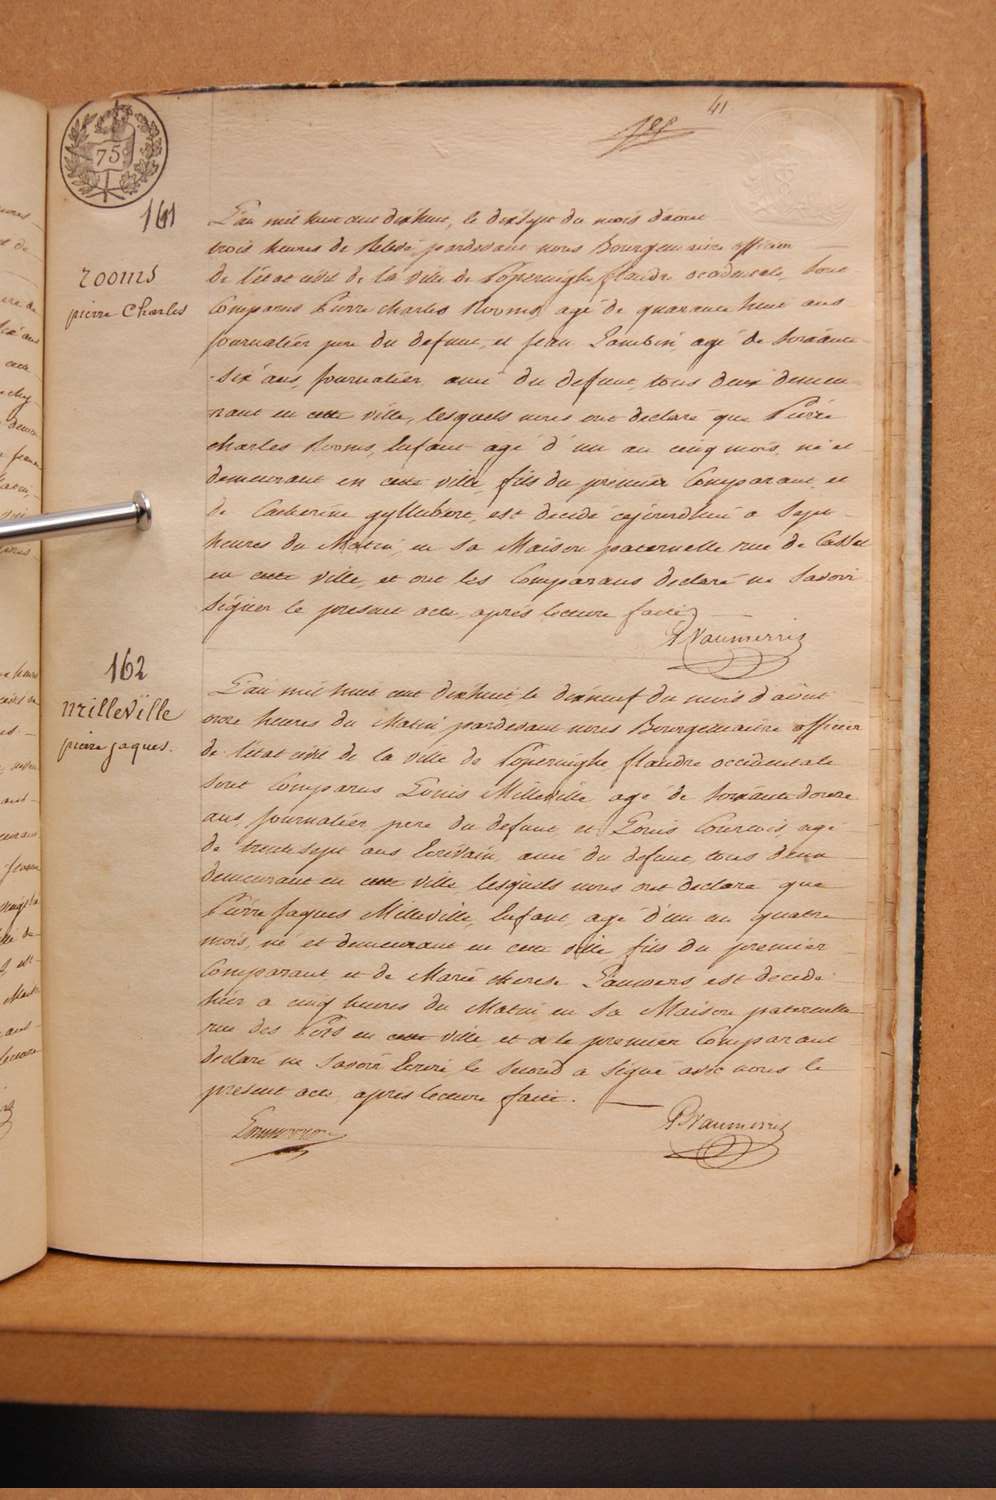 41
75
161
rooms
pierre Charles
L'an mil huit cent dixhuit, le dixsept du mois d'aout
trois heures de Relevée, pardevant nous Bourguemaitre officier
De l'état civil de la ville de Poperinghe flandre occidentale, sont
Comparus Pierre Charles Rooms, agé de quarante huit ans
Journalier pere du defunt, et Jean Lambin, agé de soixante
-six ans, Journalier, ami du defunt, tous deux demeu
rant en cette ville, lesquels nous ont declaré que Pierre
Charles Rooms, Enfant agé d'un an cinq mois, né et
demeurant en cette ville, fils du premier Comparant, et
de Catherine, est decedé cejourdhui a Sept
heures du Matin, en sa Maison paternelle rue de Cassel
en cette ville, et ont les Comparans declaré ne savoir
Signer le present acte, après lecture faite
PVanmerris
162
Milleville
pierre jaques.
L'an mil huit cent dixhuit le dixneuf du mois d'aôut
onze heures du Matin pardevant nous Bourguemaitre officier
de l'état civil de la ville de Poperinghe, flandre occidentale
sont Comparus Louis Milleville agé de soixante douze
ans, Journalier, pere du defunt, et Louis Courtois, agé
de trente sept ans Ecrivain, ami du defunt, tous deux
demeurant en cette ville, lesquels nous ont declaré que
Pierre Jaques Milleville, Enfant, agé d'un an quatre
mois, né et demeurant en cette ville fils du premier
Comparant et de Marie therese Lauwers est decedé
hier a cinq heures du Matin en sa Maison paternelle
rue des Pots en cette ville, et a le premier Comparant
declaré ne savoir Ecrire le second a Signé avec nous le
present acte, après lecture faite.
PVanmerris